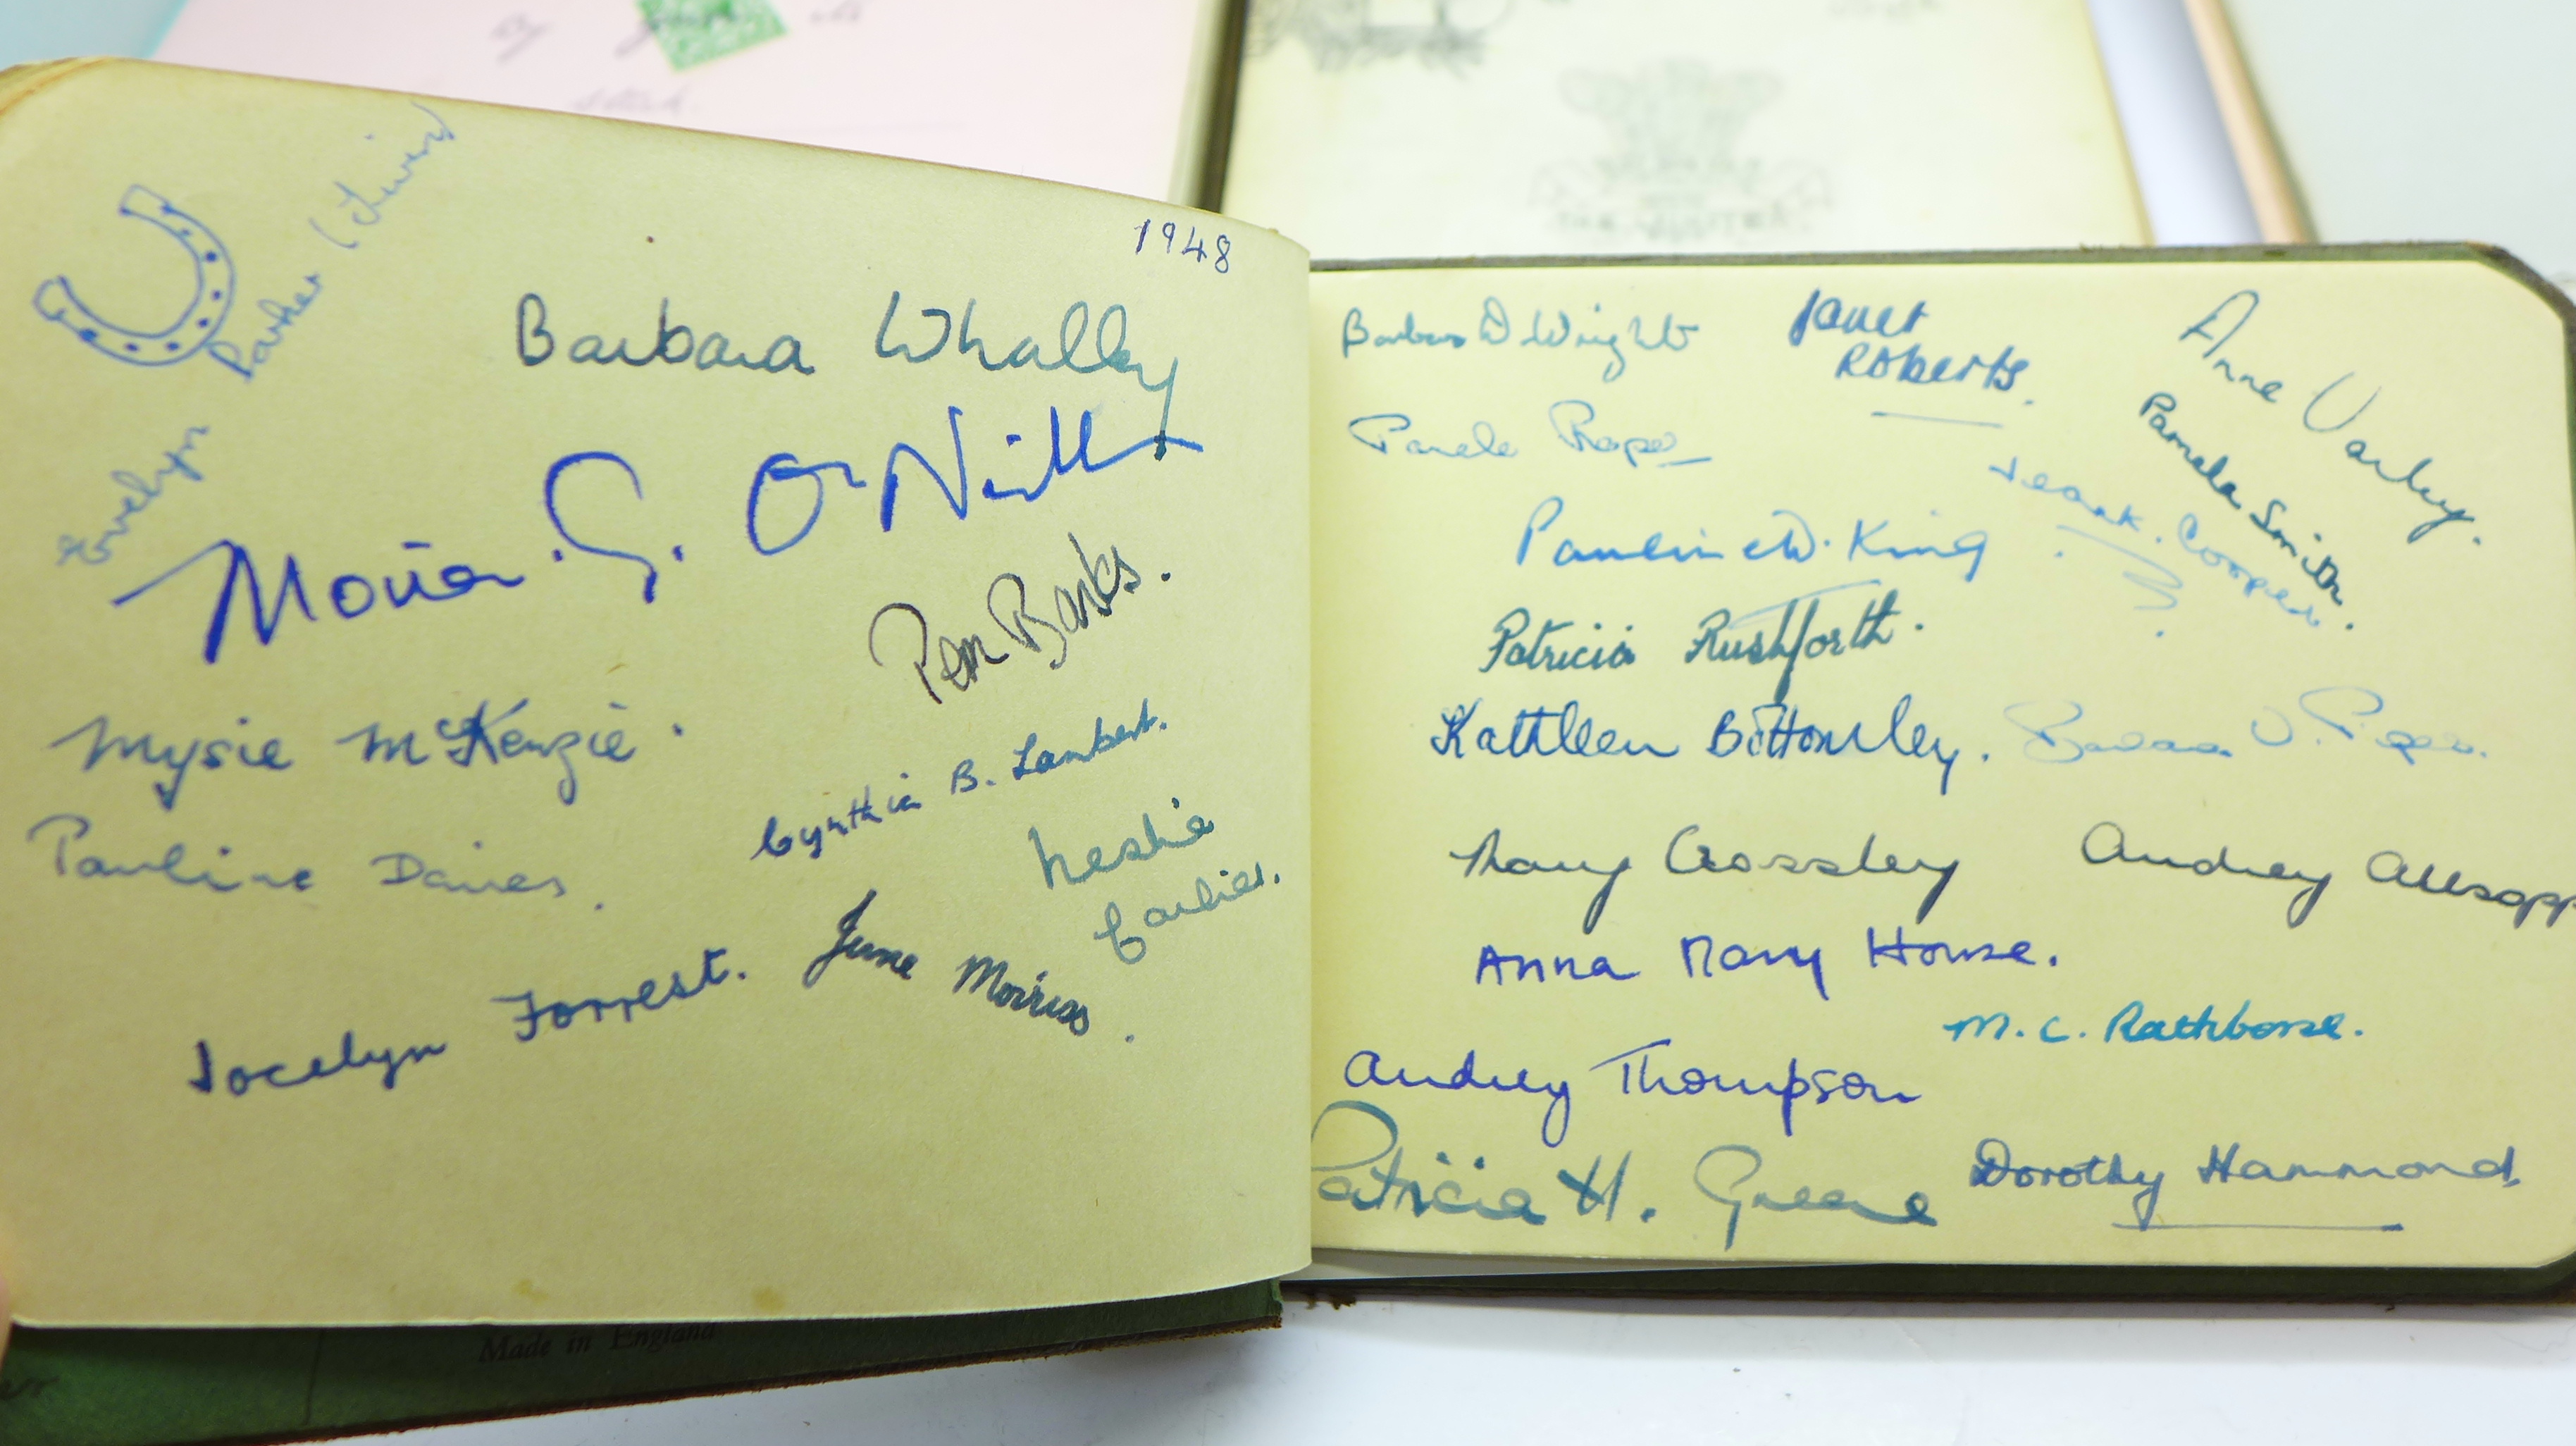 1948
Evelyn Parker
Barbara Whalley
Moira G. O'Neill
Pam Banks.
Mysie McKenzie.
Cynthia B. Lambert.
Pauline Davies.
Leslie
June Morriss.
Jocelyn Forrest.
Made in England
Barbara D. Wright
Janet
Roberts.
Anne Varley.
Pamela Smith.
Jean K. Cooper.
Pamela Roper
Pauline W. King
Patricia Rushforth.
Kathleen Bottomley.
Barbara J. Piper.
Mary Crossley
Audrey Allsopp
Anna Mary House.
M. C. Rathbone.
Audrey Thompson
Patricia H. Greene
Dorothy Hammond.